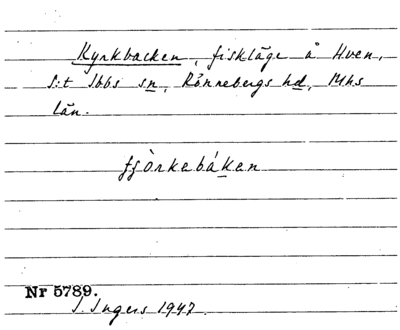 Kyrkbacken, fiskläge å Hven,
S:t Ibbs sn, Rönnebergs hd, Mhs
län.
fjòrkebáken
Nr 5789.
I. Ingers 1947.